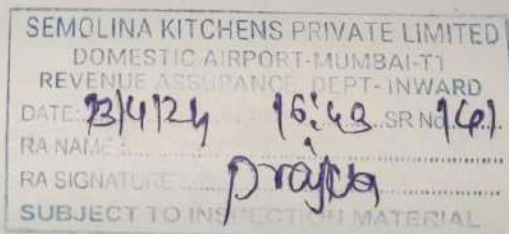 SEMOLINA KITCHENS PRIVATE LIMITED
DOMESTIC AIRPORT-MUMBAI-T1
REVENUE ASSURANCE DEPT- INWARD
DATE: 13/4/24 16:43 SR No.
RA NAME :
RA SIGNATURE
SUBJECT TO INSPECTION MATERIAL